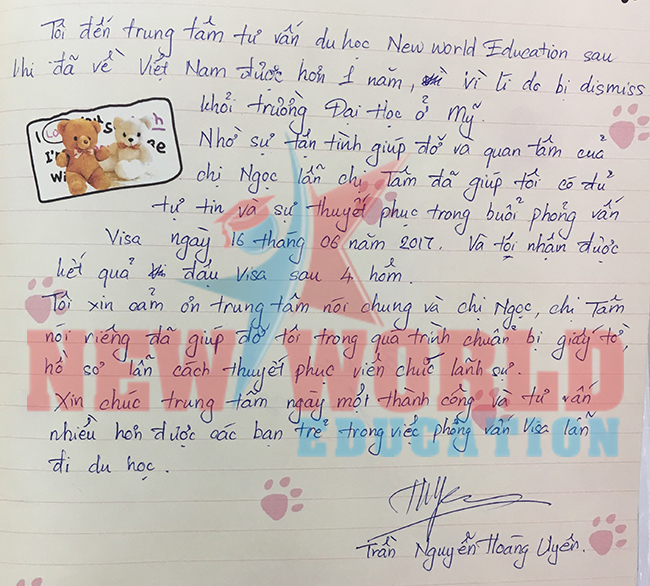 Tôi đến trung tâm tư vấn du học New world Education sau
khi đã về Việt Nam được hơn 1 năm, vì lí do bị dismiss
khỏi trường Đại Học ở Mỹ.
Nhờ sự tận tình giúp đỡ và quan tâm của
chị Ngọc lẫn chị Tâm đã giúp tôi có đủ
tự tin và sự thuyết phục trong buổi phỏng vấn
Visa ngày 16 tháng 06 năm 2017. Và tôi nhân được
kết quả đậu Visa sau 4 hôm.
Tôi xin cảm ơn trung tâm nói chung và chị Ngọc, chị Tâm
nói riêng đã giúp đỡ tôi trong quá trình chuẩn bị giấy tờ,
hồ sơ lẫn cách thuyết phục viên chức lãnh sự.
Xin chúc trung tâm ngày một thành công và tư vấn
nhiều hơn được các bạn trẻ trong việc phỏng vấn Visa lẫn
đi du học.
Trần Nguyễn Hoàng Uyên.
NEW WORLD
EDUCATION